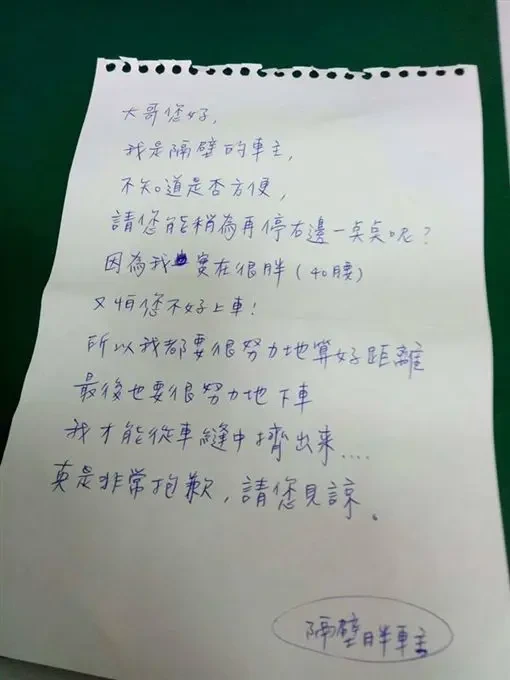 大哥您好,
我是隔壁的車主,
不知道是否方便,
請您能稍為再停右邊一點點呢?
因為我實在很胖(40腰)
又怕您不好上車!
所以我都要很努力地算好距離
最後也要很努力地下車
我才能從車縫中擠出来....
真是非常抱歉,請您見諒。
隔壁胖車主